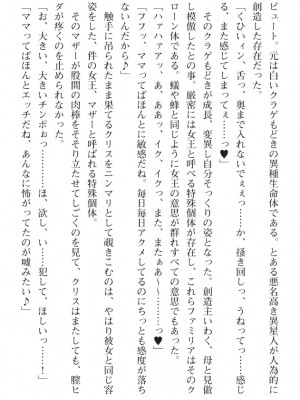 ピュート。元は白いクラゲもどきの異種生命体である。とある悪名高き異星人が人為的に
創造した存在だった。
「くひぃィン、舌っ、奥まで入れないでぇぇっ……か、掻き回しっ、うねってっ……感じ
る、また感じてしまってぇ……っ♥」
　そのクラゲもどきが成長、変異し自分そっくりの姿となった。創造主いわく、母と見做
し模倣したとの事。厳密には女王と呼べる特殊個体が存在し、これらファミリアはそのク
ローン体である。蟻や蜂と同じように女王の意思が群れすべての意思でもあった。
「ハァハァアッ、あ、ああッ、イク、イクっ、また、またぁあ～～……っ♥」
「フフッ、ママってばほんとに敏感だね。毎日毎日アクメしてるのにちっとも感度が落ち
ないんだから♪」
　触手に吊られたまま果てるクリスをニンマリとして覗きこむのは、やはり彼女と同じ容
姿をした、件の女王、マザーと呼ばれる特殊個体。
　そのマザーが股間の肉棒をそそり立たせてしごくのを見て、クリスはまたしても、膣ヒ
ダが疼くのを止められなかった。
「お、大きい、大きいチンポぉっ……は、欲し、い……犯して、ほしぃっ……！」
「ママってばほんとエッチだね、あんなに怖がってたのが嘘みたい♪」